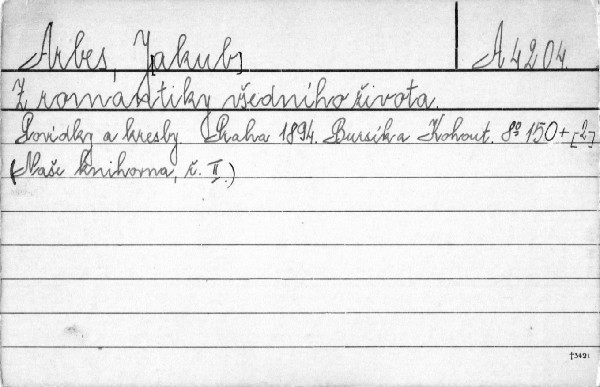 Arbes, J[akub] A 4204.
Z romantiky všedního života.
Povídky a kresby. Praha 1894. Bursík a Kohout. 8° 150+[2]
(Naše knihovna, č. II.)
†3421